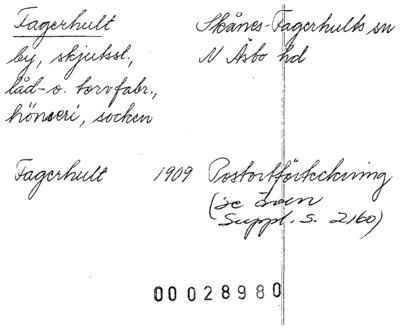 Fagerhult Skånes-Fagerhults sn
by, skjutsst., N Åsbo hd
låd- o. torvfabr.,
hönseri, socken
Fagerhult 1909 Postortförteckning
(se även
Suppl. s. 2160)
00 028980